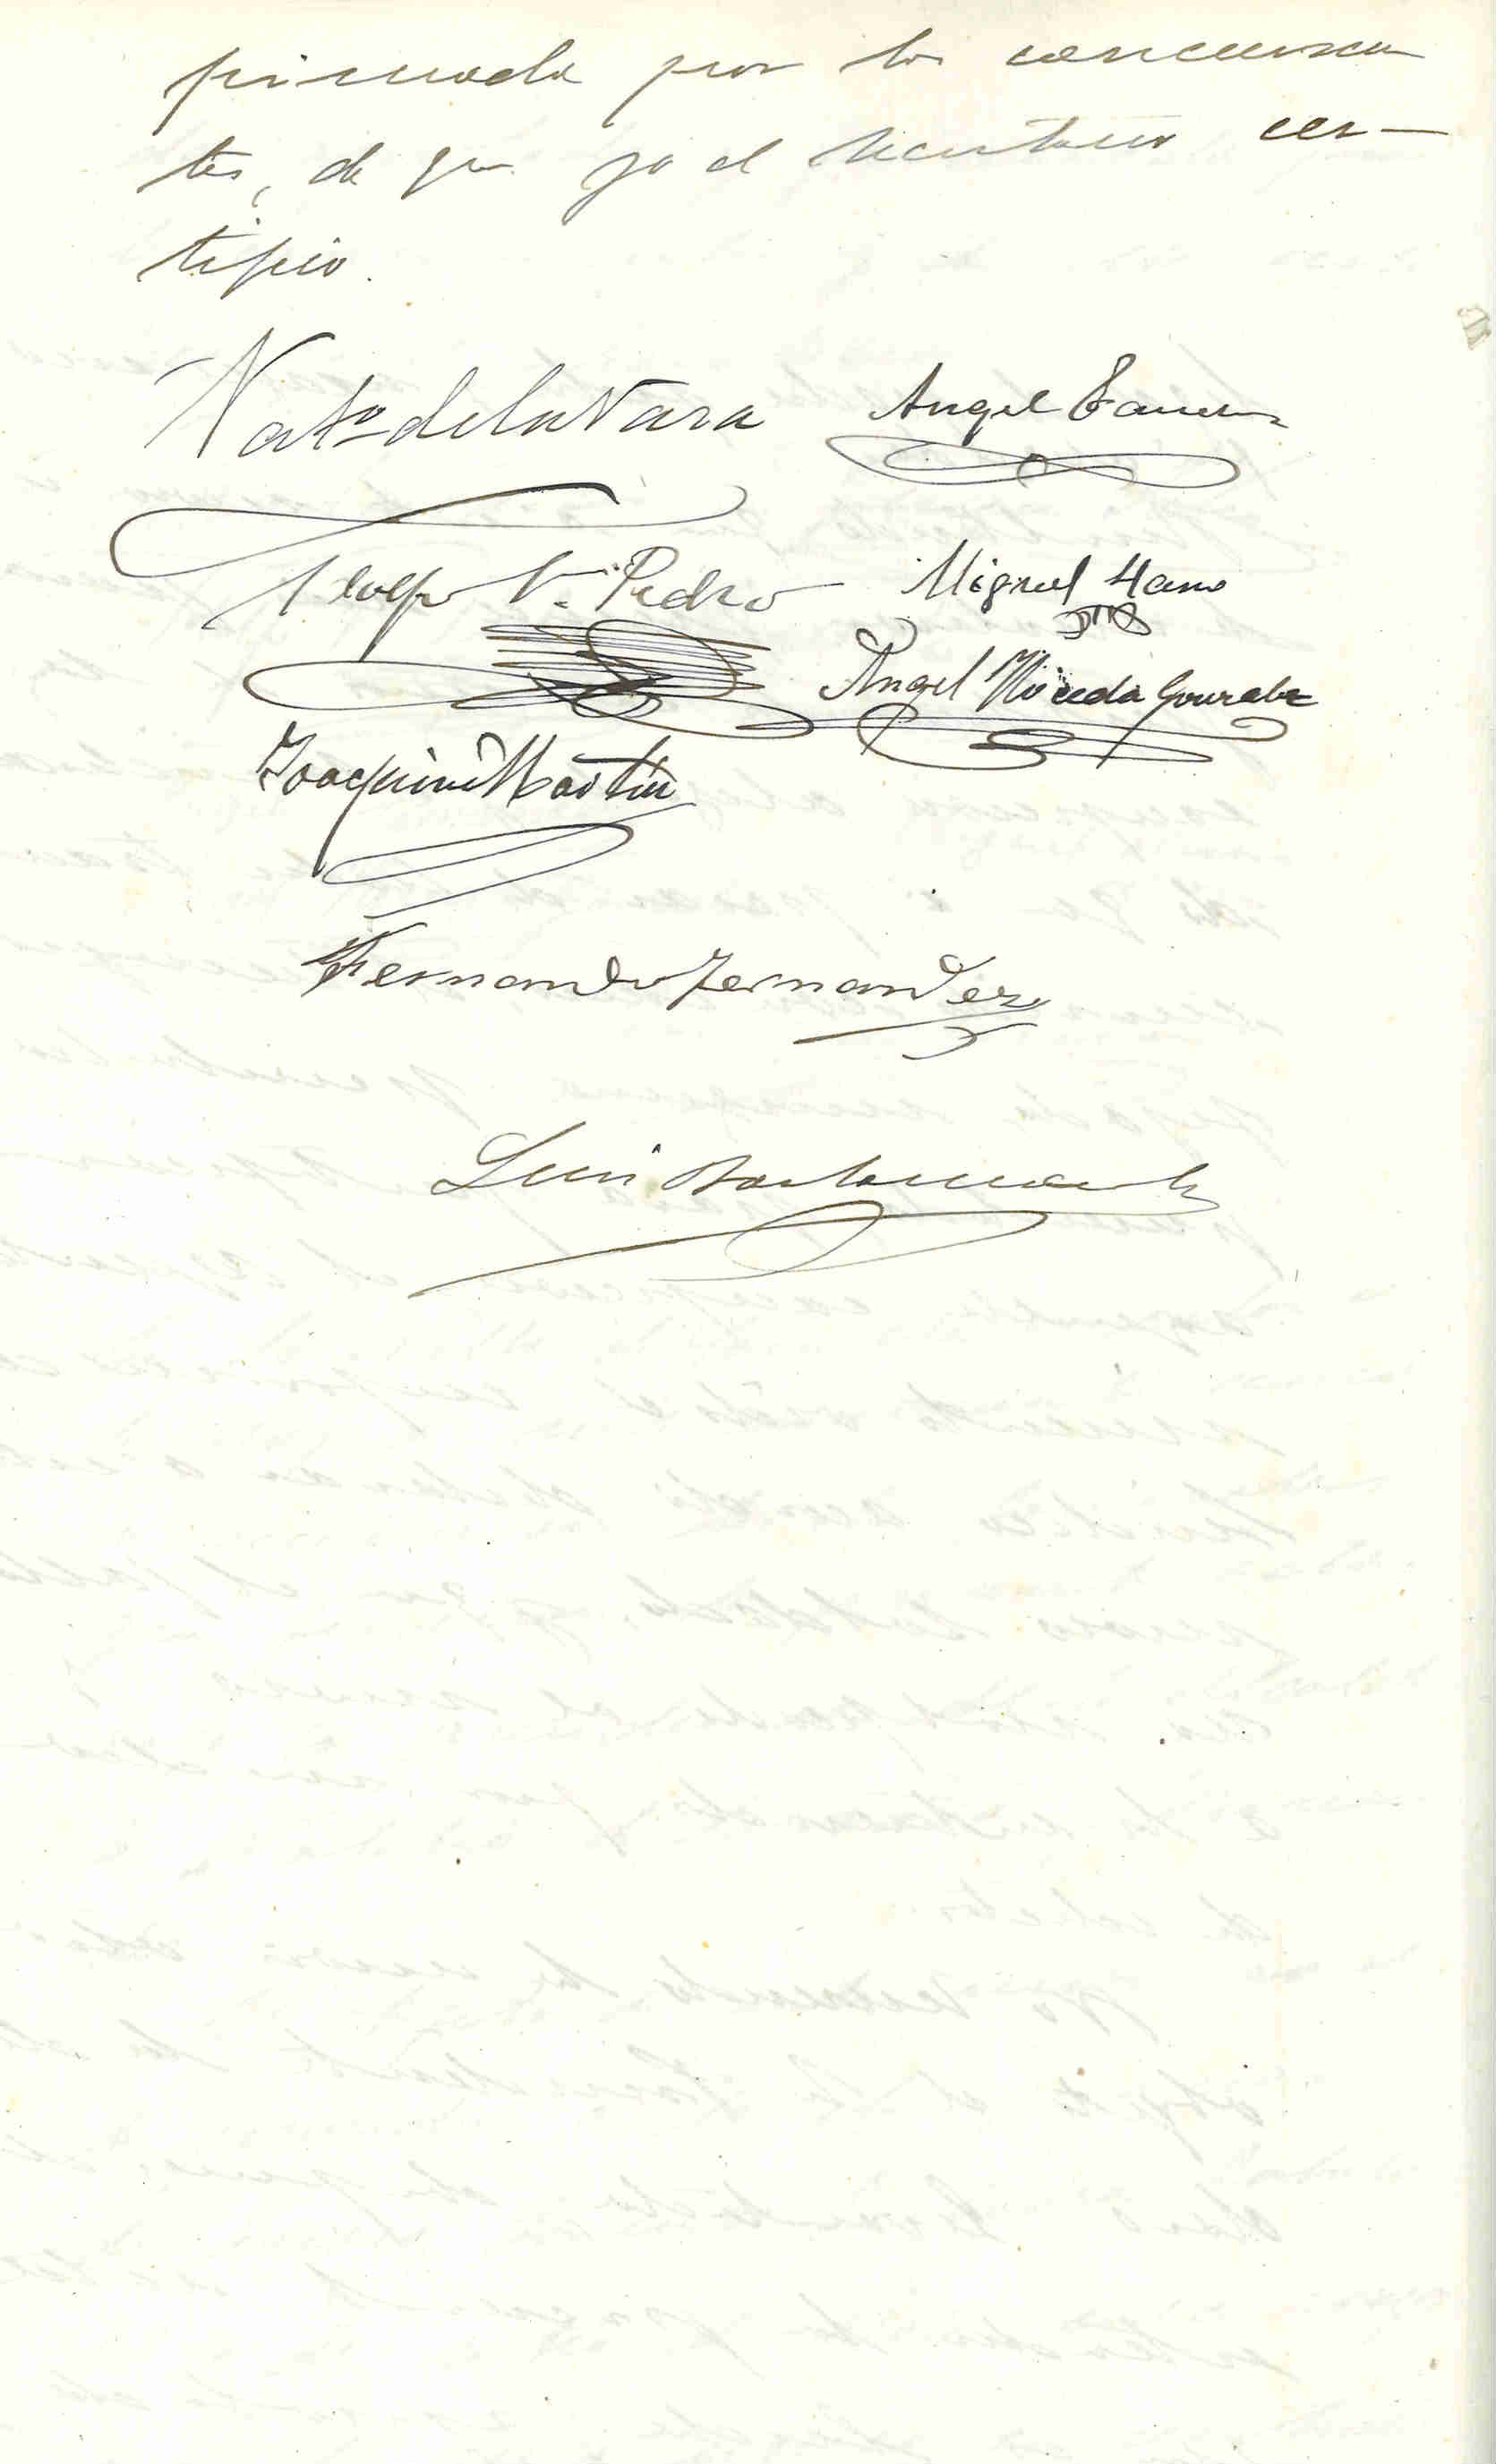 firmada por los concurren
tes, de que yo el secretario cer-
tifico.
Nat.º de la Vara Angel
Adolfo V. Pedro Miguel Hano
Angel Pineda Gonzalez
Joaquin Martin
Fernando Fernandez
Luis